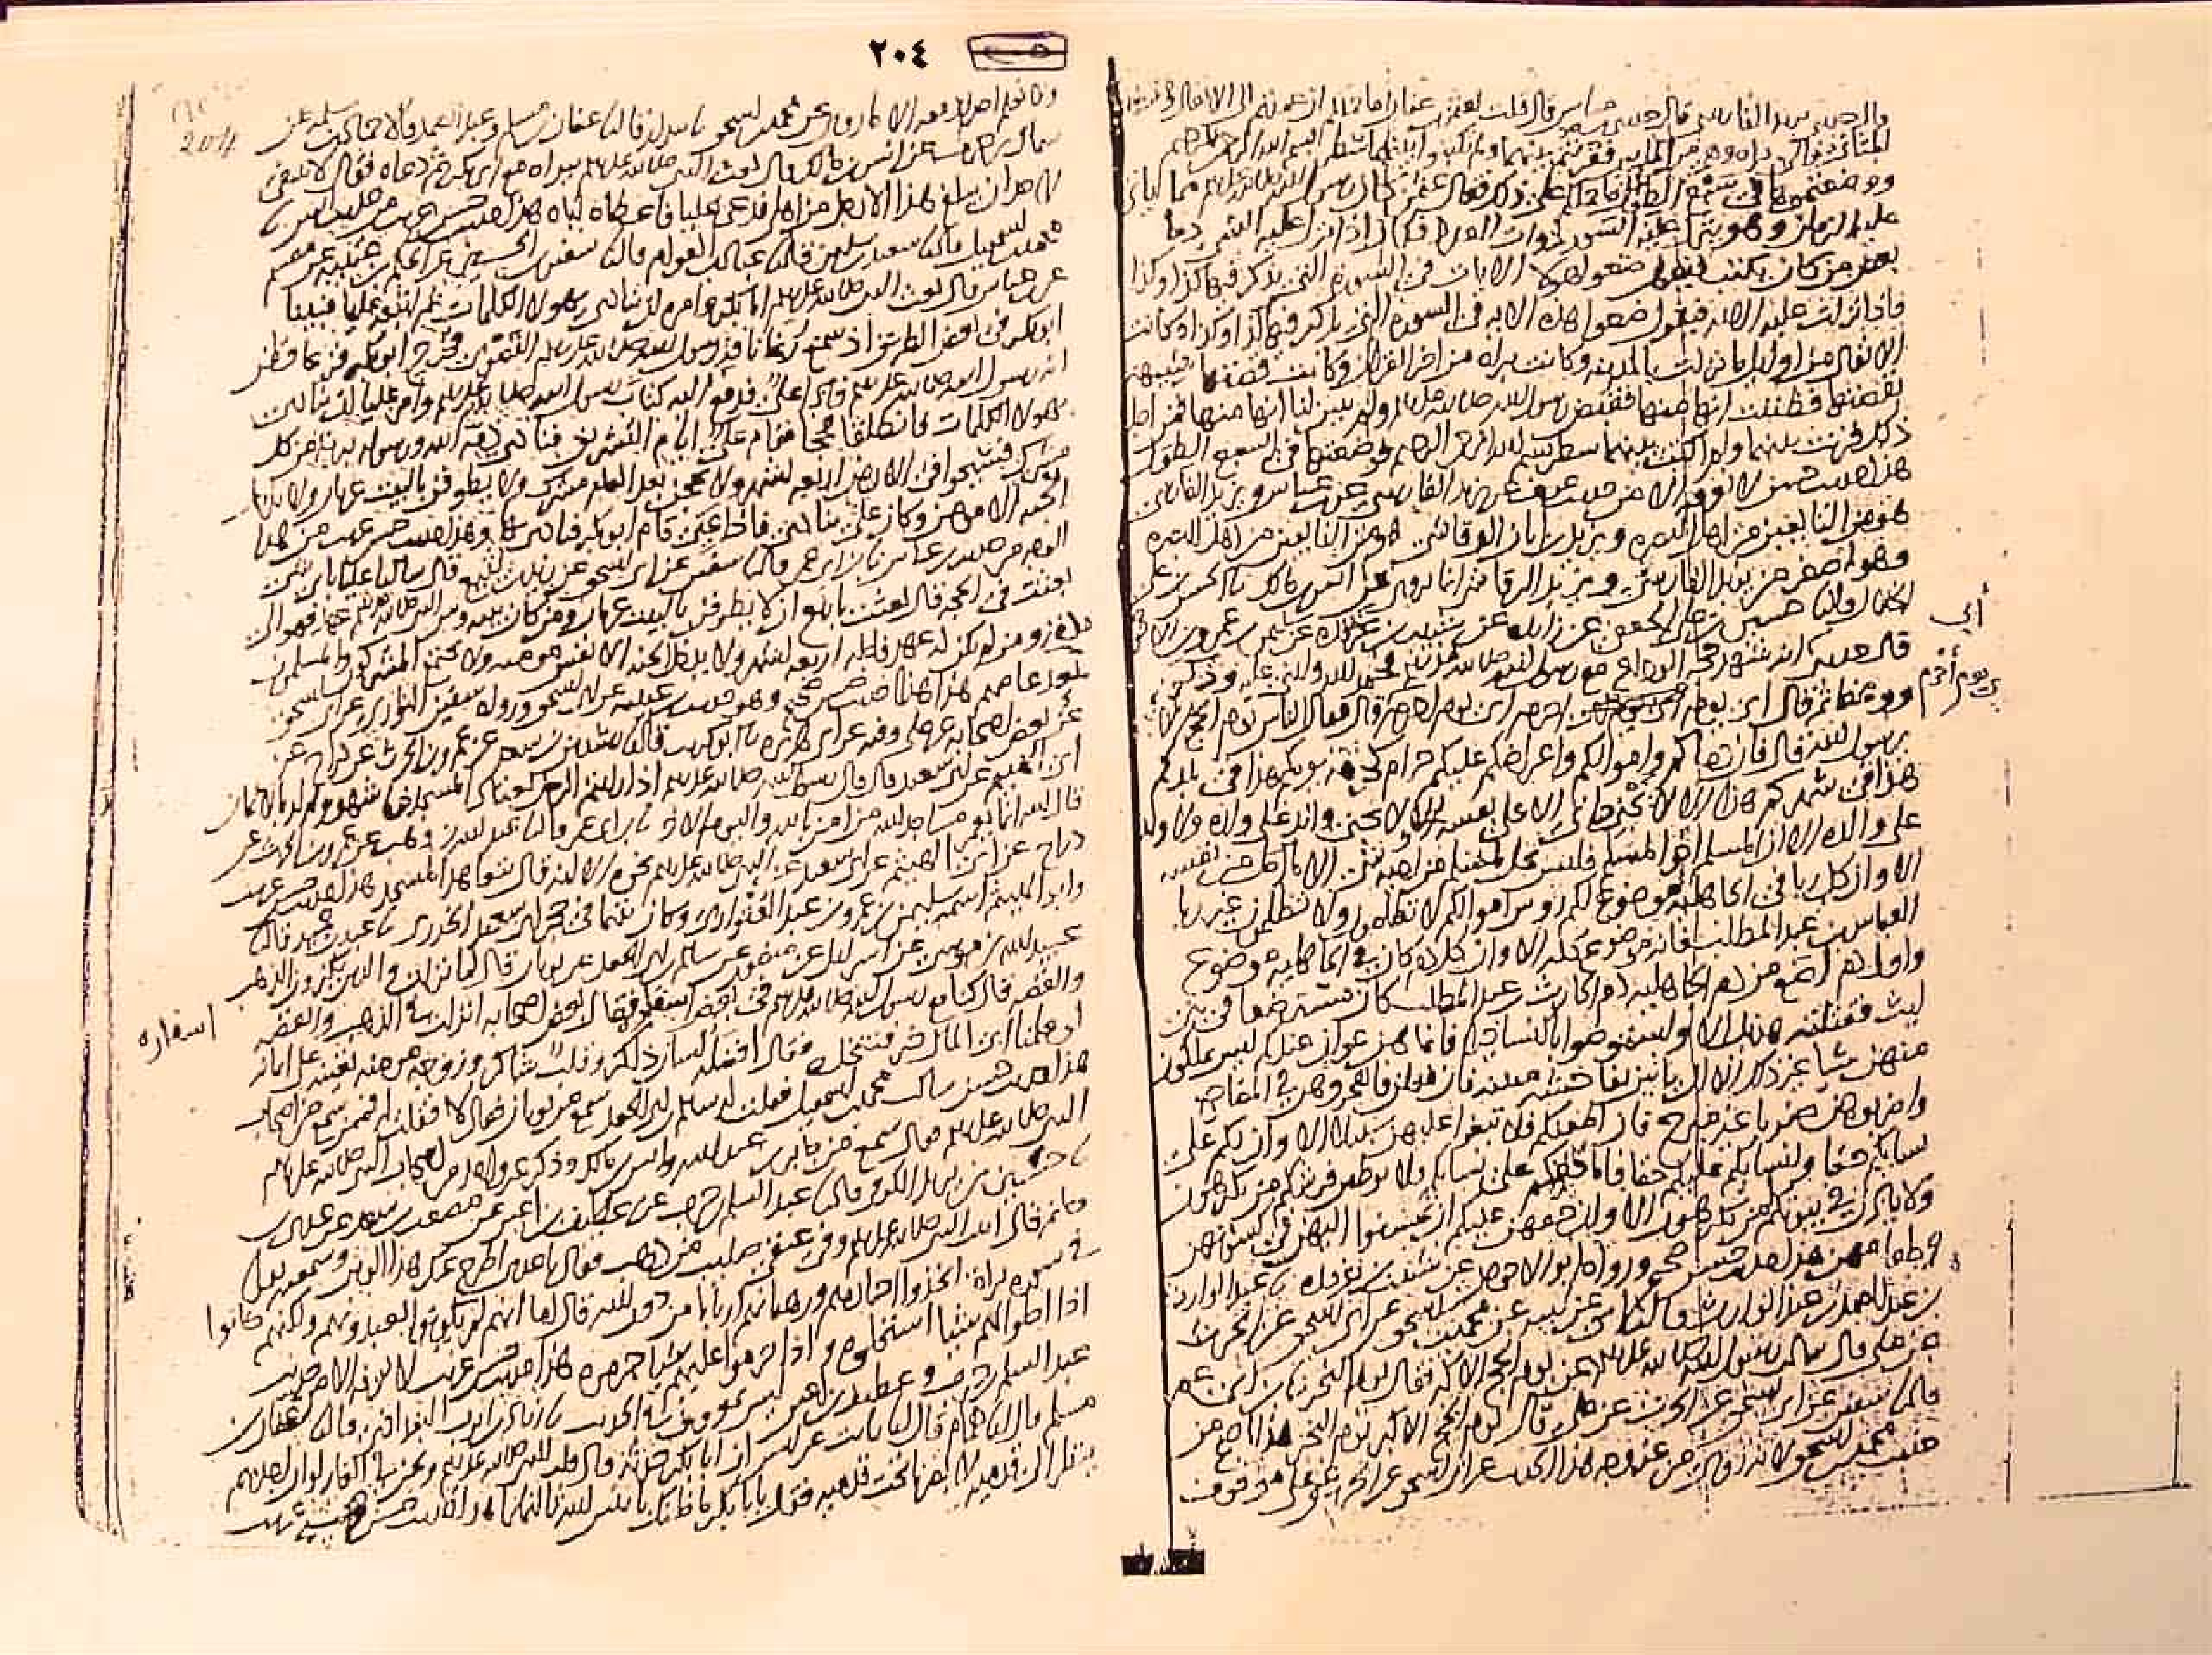 ٢٠٤
204
قال حدثني يزيد الفارسي قال حدثني ابن عباس قال قلت لعثمن بن عفان ما حملكم ان عمدتم الى الانفال وهي من
المثاني والى براه وهي من المايين فقرنتم بينهما ولم تكتبوا بينهما سطر بسم الله الرحمن الرحيم
ووضعتموها في السبع الطول ما حملكم على ذلك فقال عثمن كان رسول الله صلى الله عليه وسلم مما ياتي
عليه الزمان وهو ينزل عليه السور ذوات العدد فكان اذا نزل عليه الشي دعا
بعض من كان يكتب فيقول ضعوا هولا الايات في السورة التي يذكر فيها كذا وكذا
فاذا نزلت عليه الاية فيقول ضعوا هذه الاية في السورة التي يذكر فيها كذا وكذا وكانت
الانفال من اوايل ما نزلت بالمدينة وكانت براه من اخر القران وكانت قصتها شبيهة
بقصتها فظننت انها منها فقبض رسول الله صلى الله عليه وسلم ولم يبين لنا انها منها فمن اجل
ذلك قرنت بينهما ولم اكتب بينهما سطر بسم الله الرحمن الرحيم فوضعتها في السبع الطول
هذا حديث حسن لا نعرفه الا من حديث عوف عن يزيد الفارسي عن ابن عباس ويزيد الفارسي
هو من التابعين من اهل البصرة ويزيد بن ابان الرقاشي هو من التابعين من اهل البصرة
وهو اصغر من يزيد الفارسي ويزيد الرقاشي انما يروي عن انس بن مالك نا الحسن بن علي
الخلال نا حسين بن علي الجعفي عن زايدة عن شبيب بن غرقدة عن سليمن بن عمرو بن الاحوص
أبي
قال حدثنا انه شهد حجة الوداع مع رسول الله صلى الله عليه وسلم فحمد الله واثنى عليه وذكر
ووعظ ثم قال اي يوم احرم اي يوم احرم قال فقال الناس يوم الحج الاكبر
اي يوم أحرم
يرسول الله قال فان دماكم واموالكم واعراضكم عليكم حرام كحرمة يومكم هذا في بلدكم
هذا في شهركم هذا الا لا يجني جاني الا على نفسه الا لا يجني والد على ولده ولا ولد
على والده الا ان المسلم اخو المسلم فليس يحل لمسلم من اخيه شي الا ما احل من نفسه
الا وان كل ربا في الجاهلية موضوع لكم روس اموالكم لا تظلمون ولا تظلمون غير ربا
العباس بن عبد المطلب فانه موضوع كله الا وان كل دم كان في الجاهلية موضوع
واول دم اضع من دم الجاهلية دم الحارث بن عبد المطلب كان مسترضعا في بني
ليث فقتلته هذيل الا واستوصوا بالنسا خيرا فانما هن عوان عندكم ليس تملكون
منهن شيا غير ذلك الا ان ياتين بفاحشة مبينة فان فعلن فاهجروهن في المضاجع
واضربوهن ضربا غير مبرح فان اطعنكم فلا تبغوا عليهن سبيلا الا وان لكم على
نسايكم حقا ولنسايكم عليكم حقا فاما حقكم على نسايكم فلا يوطين فرشكم من تكرهون
ولا ياذن في بيوتكم من تكرهون الا وان حقهن عليكم ان تحسنوا اليهن في كسوتهن
وطعامهن هذا حديث حسن صحيح ورواه ابو الاحوص عن شبيب بن غرقدة نا عبد الوارث
بن عبد الصمد بن عبد الوارث قال نا ابي عن ابيه عن محمد بن اسحق عن ابي اسحق عن الحرث
عن علي قال سالت رسول الله صلى الله عليه وسلم عن يوم الحج الاكبر فقال يوم النحر نا ابن ابي عمر
قال نا سفين عن ابي اسحق عن الحرث عن علي قال يوم الحج الاكبر يوم النحر هذا اصح من
حديث محمد بن اسحق لانه روي من غير وجه هذا الحديث عن ابي اسحق عن الحرث عن علي موقوف
ولا نعلم احدا رفعه الا ما روي عن محمد بن اسحق نا بندار قال نا عفان بن مسلم وعبد الصمد قالا نا حماد بن سلمة عن
سماك بن حرب عن انس بن مالك قال بعث النبي صلى الله عليه وسلم ببراه مع ابي بكر ثم دعاه فقال لا ينبغي
لاحد ان يبلغ هذا الا رجل من اهلي فدعى عليا فاعطاه اياه هذا حديث حسن غريب من حديث انس نا
محمد بن اسمعيل قال نا سعيد بن سليمن قال نا عباد بن العوام قال نا سفين بن الحسين عن الحكم بن عتيبة عن مقسم
عن ابن عباس قال بعث النبي صلى الله عليه وسلم ابا بكر وامره ان ينادي بهولا الكلمات ثم اتبعه عليا فبينا
ابو بكر في بعض الطريق اذ سمع رغا ناقة رسول الله صلى الله عليه وسلم القصوى فخرج ابو بكر فزعا فظن
انه رسول الله صلى الله عليه وسلم فاذا علي فدفع اليه كتاب رسول الله صلى الله عليه وسلم وامر عليا ان ينادي
بهولا الكلمات فانطلقا فحجا فقام علي ايام التشريق فنادى ذمة الله ورسوله برية من كل
مشرك فسيحوا في الارض اربعة اشهر ولا يحجن بعد العام مشرك ولا يطوفن بالبيت عريان ولا يدخل
الجنة الا مومن وكان علي ينادي فاذا عيي قام ابو بكر فنادى بها وهذا حديث حسن غريب من هذا
الوجه من حديث ابن عباس نا ابن ابي عمر قال نا سفين عن ابي اسحق عن زيد بن يثيع قال سالنا عليا باي شي
بعثت في الحجة قال بعثت باربع ان لا يطوفن بالبيت عريان ومن كان بينه وبين النبي صلى الله عليه وسلم عهد فهو الى
مدته ومن لم يكن له عهد فاجله اربعة اشهر ولا يدخل الجنة الا نفس مومنة ولا يجتمع المشركون والمسلمون
بعد عامهم هذا هذا حديث حسن صحيح وهو حديث ابن عيينة عن ابي اسحق ورواه سفين الثوري عن ابي اسحق
عن بعض اصحابه عن علي وفيه عن ابي هريرة نا ابو كريب قال نا رشدين بن سعد عن عمرو بن الحرث عن دراج عن
ابي الهيثم عن ابي سعيد قال قال رسول الله صلى الله عليه وسلم اذا رايتم الرجل يعتاد المسجد فاشهدوا له بالايمان
قال الله انما يعمر مساجد الله من امن بالله واليوم الاخر نا ابن ابي عمر قال نا عبد الله بن وهب عن عمرو بن الحرث عن
دراج عن ابي الهيثم عن ابي سعيد عن النبي صلى الله عليه وسلم نحوه الا انه قال يتعاهد المسجد هذا حديث حسن غريب
وابو الهيثم اسمه سليمن بن عمرو بن عبد العتواري وكان يتيما في حجر ابي سعيد الخدري نا عبد بن حميد قال نا
عبيد الله بن موسى عن اسرايل عن منصور عن سالم بن ابي الجعد عن ثوبان قال لما نزلت والذين يكنزون الذهب
والفضة قال كنا مع رسول الله صلى الله عليه وسلم في بعض اسفاره فقال بعض اصحابه انزلت في الذهب والفضة
اسفاره
لو علمنا اي المال خير فنتخذه فقال افضله لسان ذاكر وقلب شاكر وزوجة مومنة تعينه على ايمانه
هذا حديث حسن سالت محمد بن اسمعيل فقلت له سالم بن ابي الجعد سمع من ثوبان فقال لا فقلت له ممن سمع من اصحاب
النبي صلى الله عليه وسلم فقال سمع من جابر بن عبد الله وانس بن مالك وذكر غير واحد من اصحاب النبي صلى الله عليه وسلم
نا حسين بن يزيد الكوفي قال نا عبد السلم بن حرب عن غطيف بن اعين عن مصعب بن سعد عن عدي بن
حاتم قال اتيت النبي صلى الله عليه وسلم وفي عنقي صليب من ذهب فقال يا عدي اطرح عنك هذا الوثن وسمعته يقرا
في سورة براة اتخذوا احبارهم ورهبانهم اربابا من دون الله قال اما انهم لم يكونوا يعبدونهم ولكنهم كانوا
اذا احلوا لهم شيا استحلوه واذا حرموا عليهم شيا حرموه هذا حديث حسن غريب لا نعرفه الا من حديث
عبد السلم بن حرب وغطيف بن اعين ليس بمعروف في الحديث نا زياد بن ايوب البغدادي قال نا عفان بن
مسلم قال نا همام قال نا ثابت عن انس ان ابا بكر حدثه قال قلت للنبي صلى الله عليه وسلم ونحن في الغار لو ان احدهم
ينظر الى قدميه لابصرنا تحت قدميه فقال يا ابا بكر ما ظنك باثنين الله ثالثهما هذا حديث حسن صحيح غريب